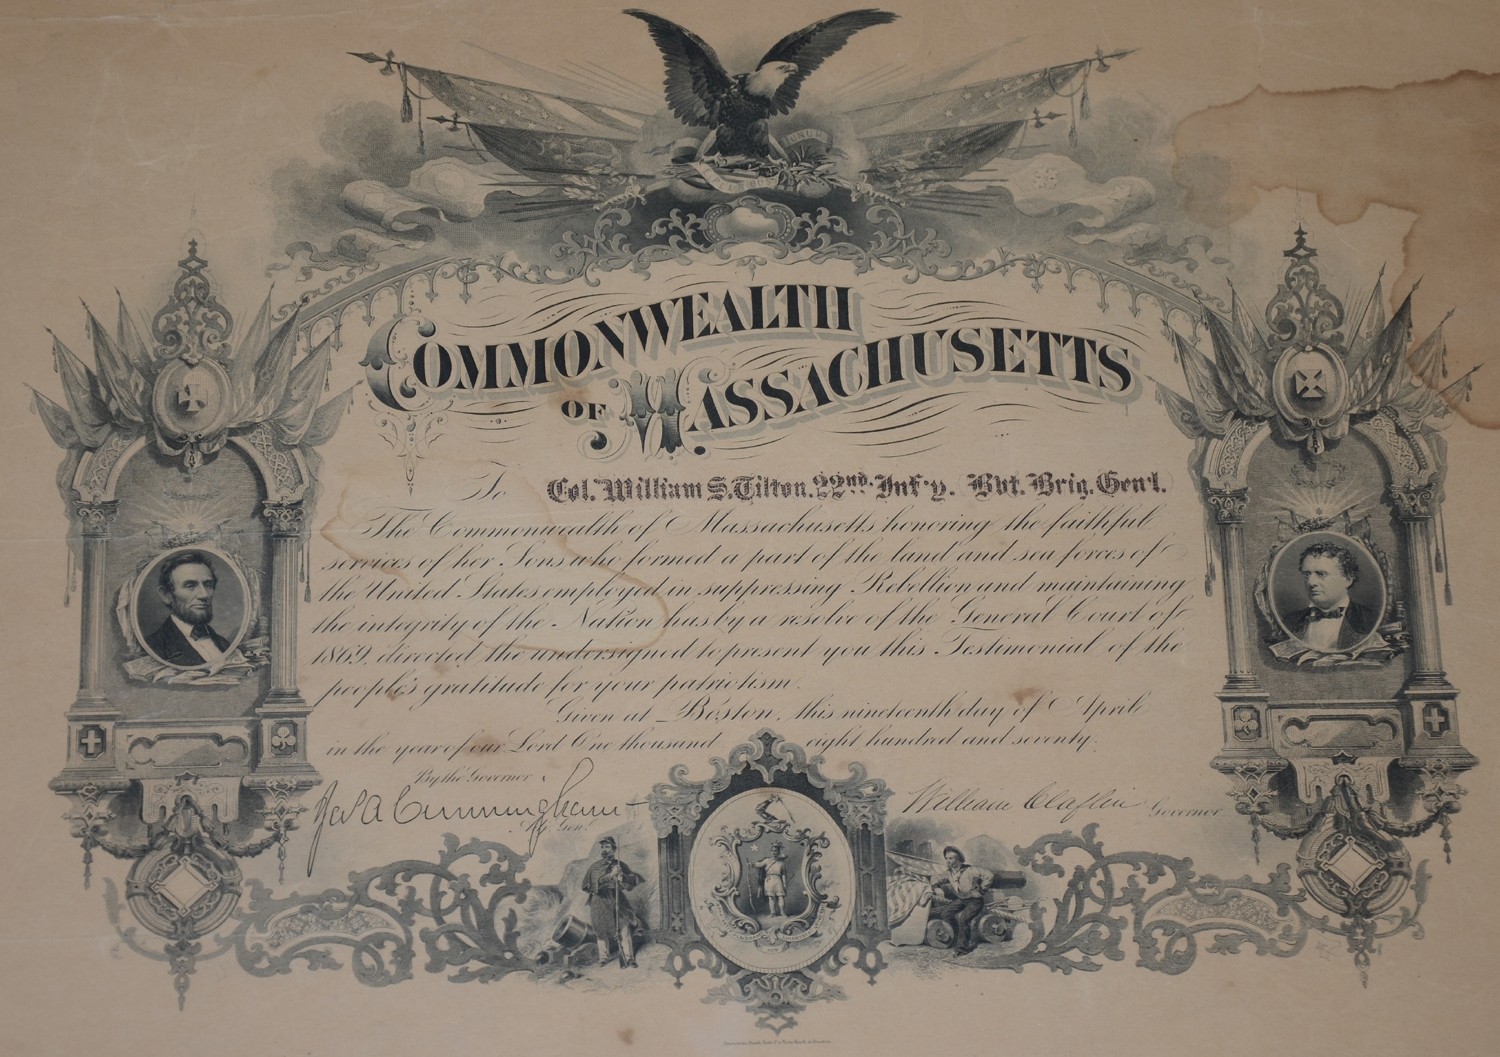 COMMONWEALTH
OF MASSACHUSETTS
To Col. William S. Tilton. 22nd. Inf'y. Bvt. Brig. Gen'l.
The Commonwealth of Massachusetts honoring the faithful
services of her Sons who formed a part of the land and sea forces of
the United States employed in suppressing Rebellion and maintaining
the integrity of the Nation has by a resolve of the General Court of
1869, directed the undersigned to present you this Testimonial of the
people's gratitude for your patriotism.
Given at Boston, this nineteenth day of April
in the year of our Lord One thousand eight hundred and seventy.
By the Governor,
Jas A Cunningham
Adj. Gen.
William Claflin Governor